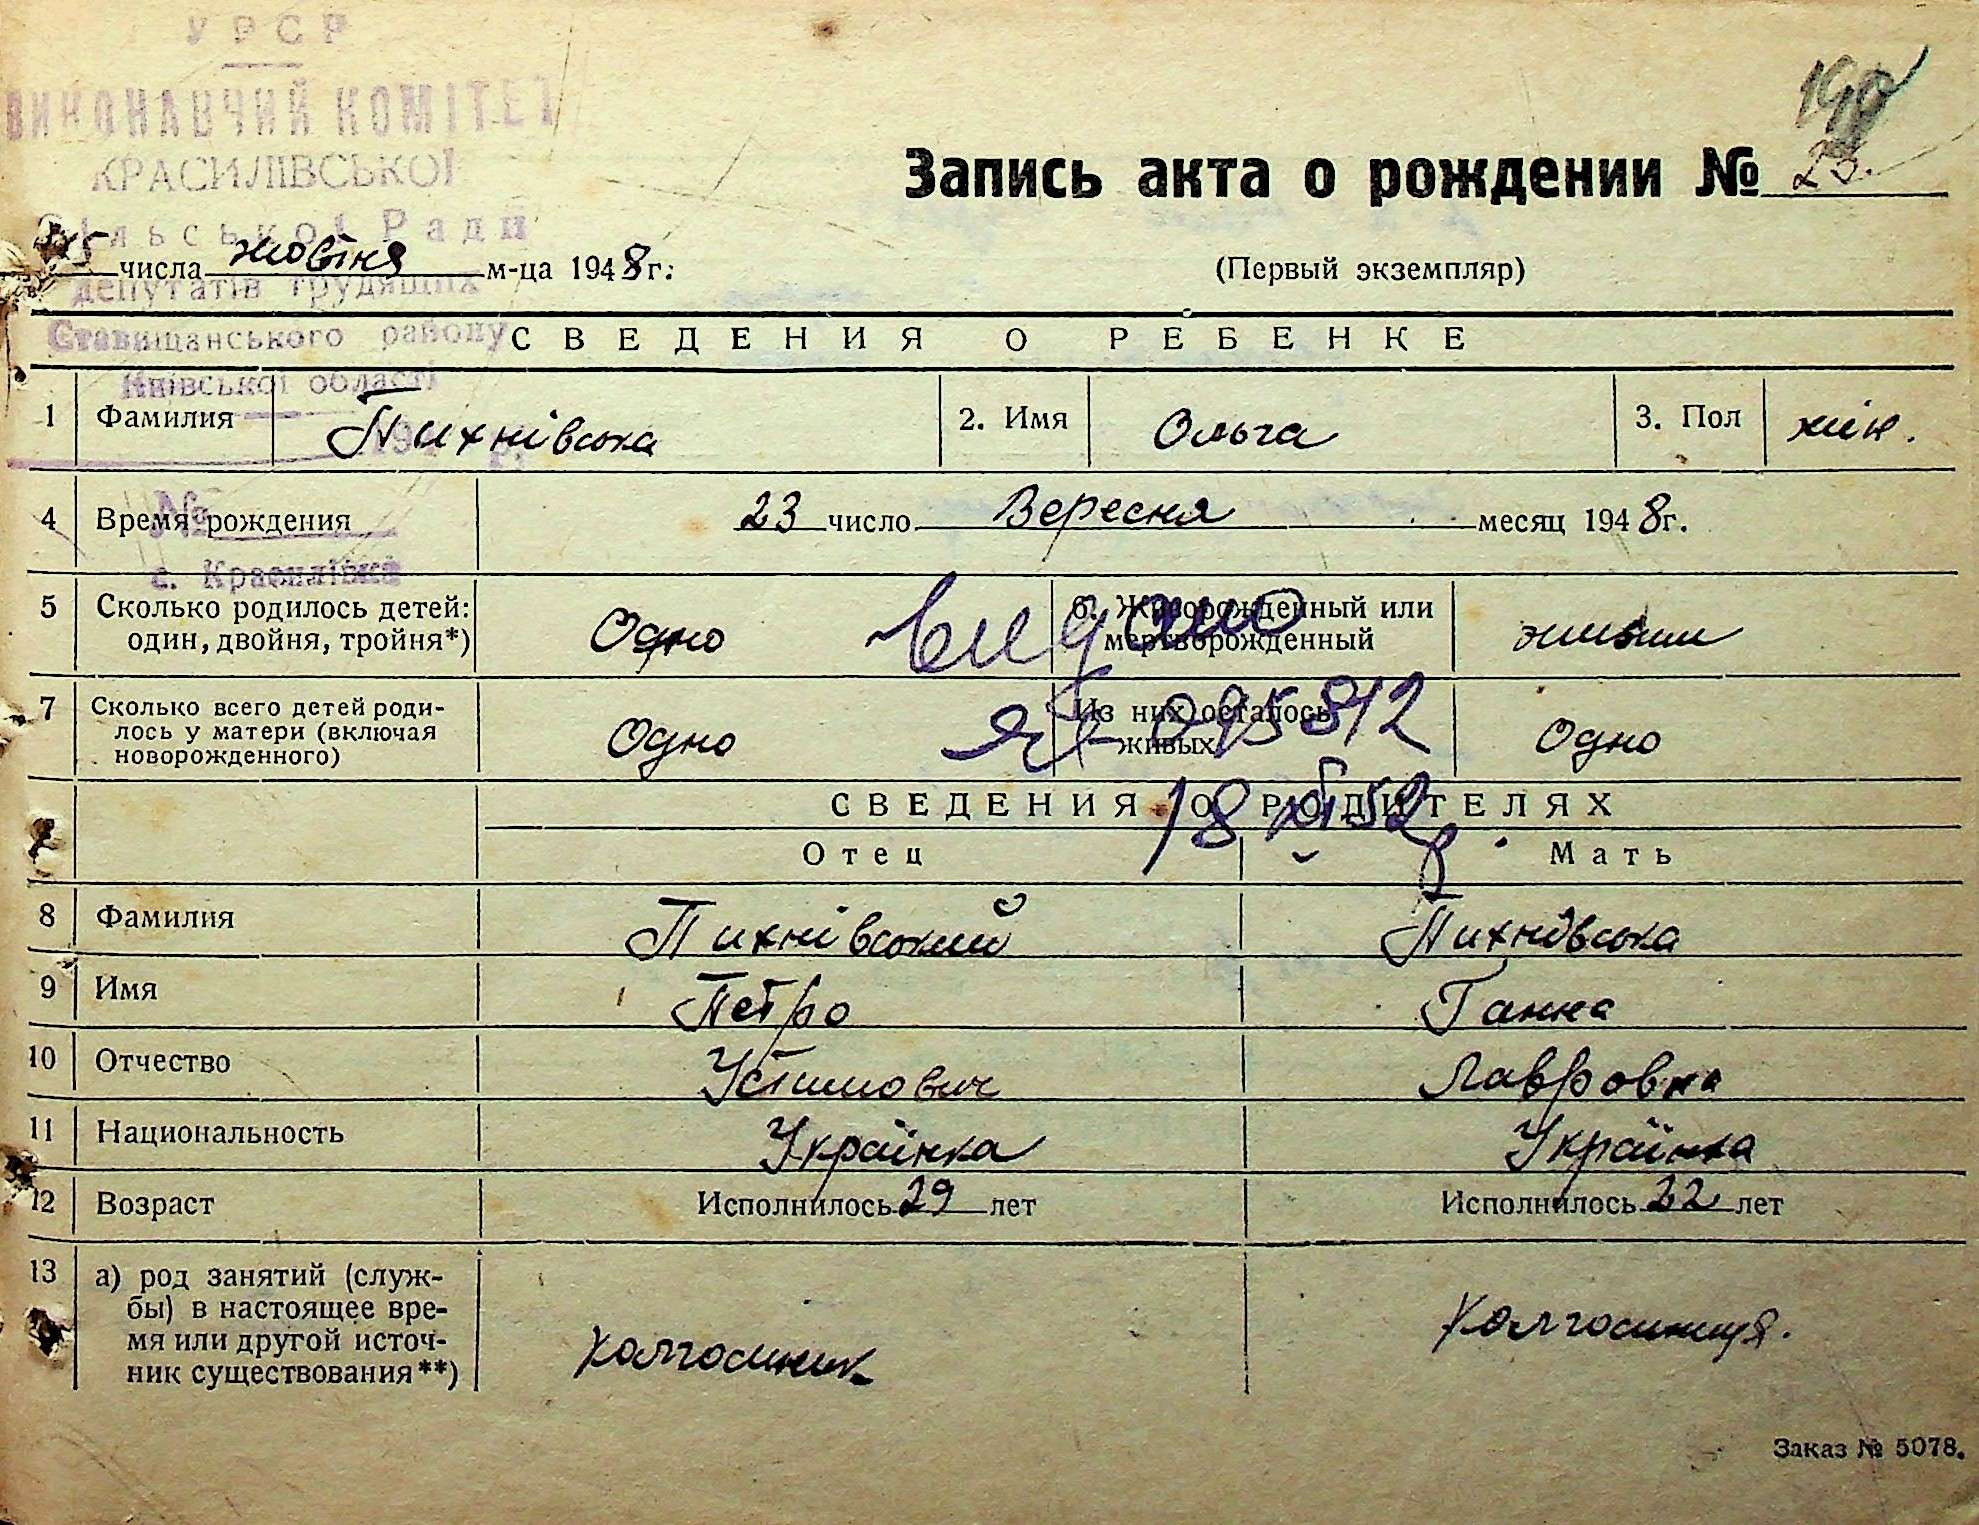 УРСР
ВИКОНАВЧИЙ КОМІТЕТ
КРАСИЛІВСЬКОЇ
Сільської Ради
депутатів трудящих
Ставищанського району
Київської області
194 р.
№
с. Красилівка
190
Запись акта о рождении № 23.
5 числа жовтня м-ца 1948г.
(Первый экземпляр)
СВЕДЕНИЯ О РЕБЕНКЕ
1 Фамилия Пихнівська 2. Имя Ольга 3. Пол жін.
4 Время рождения 23 число Вересня месяц 1948г.
5 Сколько родилось детей: один, двойня, тройня*) Одно 6. Живорожденный или мертворожденный живим
видано
7 Сколько всего детей родилось у матери (включая новорожденного) Одно Из них осталось живых Одно
095812
18 52
СВЕДЕНИЯ О РОДИТЕЛЯХ
Отец Мать
8 Фамилия Пихнівський Пихнівська
9 Имя Петро Ганна
10 Отчество Устимович Лавровна
11 Национальность Українка Українка
12 Возраст Исполнилось 29 лет Исполнилось 22 лет
13 а) род занятий (служ-
бы) в настоящее вре-
мя или другой источ-
ник существования**) Колгоспник Колгоспниця.
Заказ № 5078.